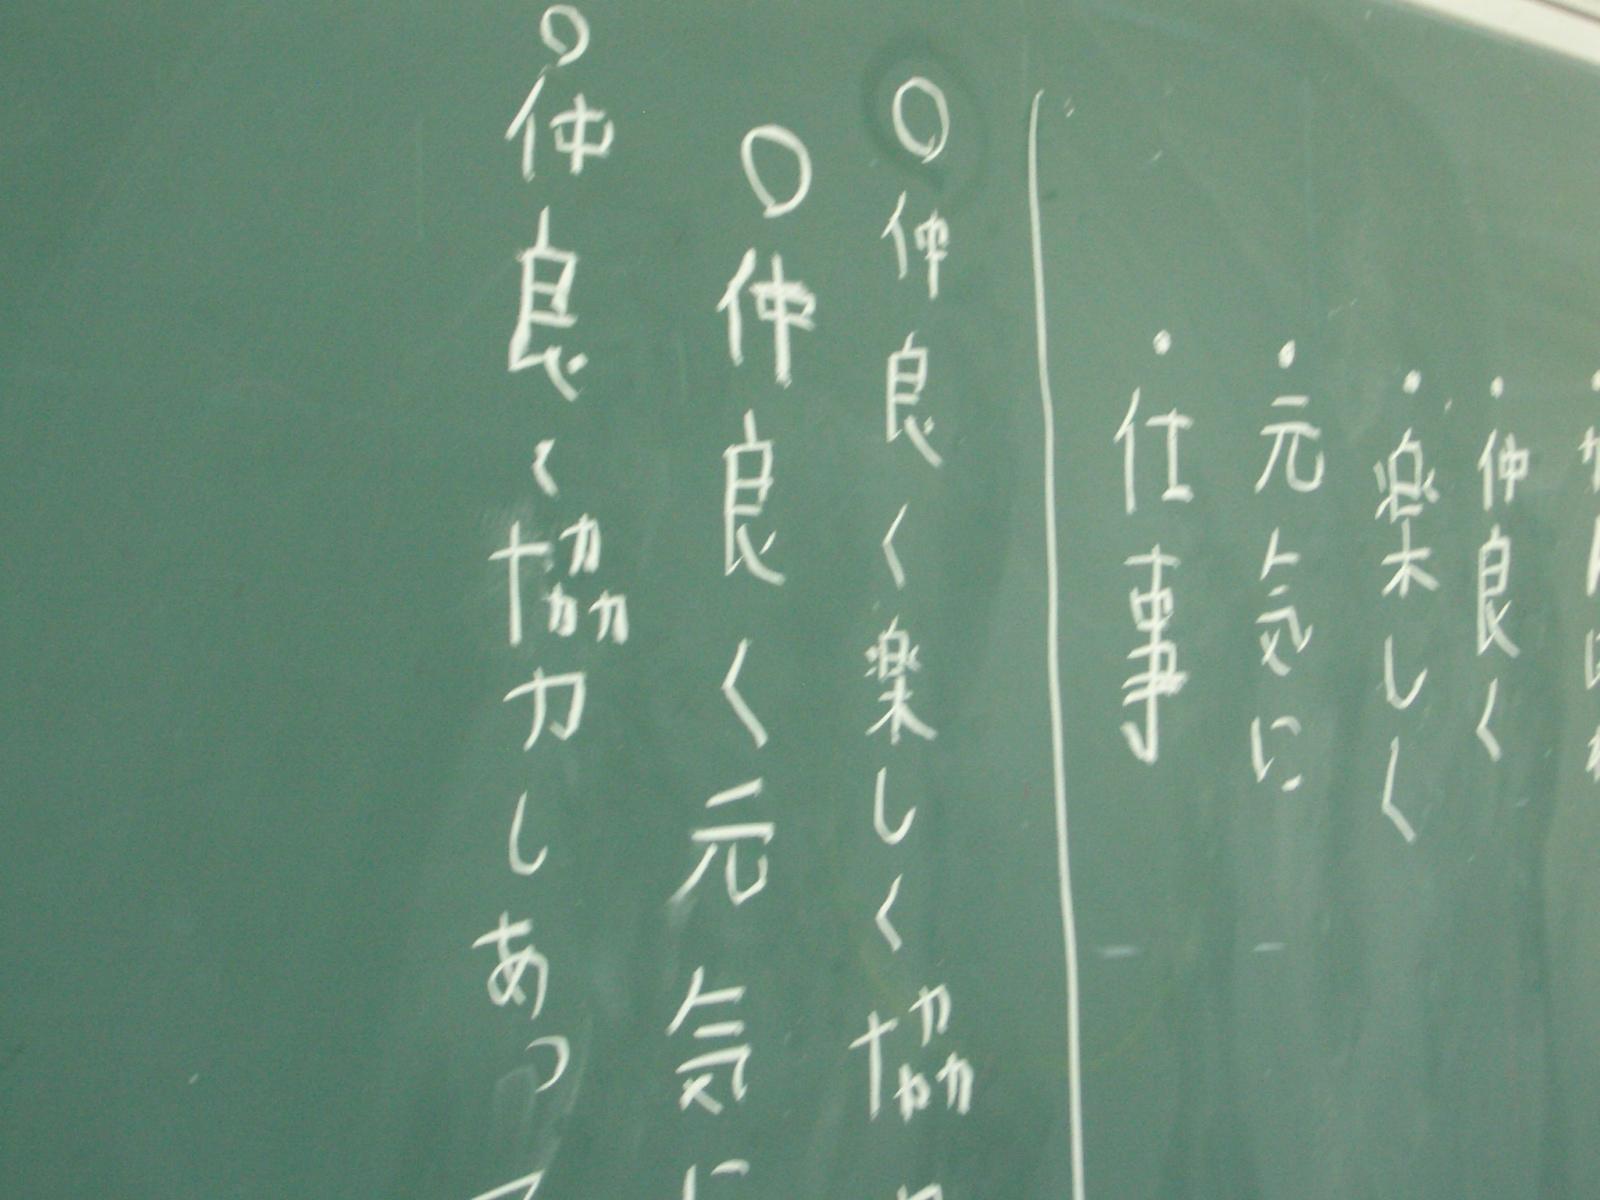 ・仲良く
・楽しく
・元気に
・仕事
○仲良く楽しく協
○仲良く元気に
○仲良く協力しあっ